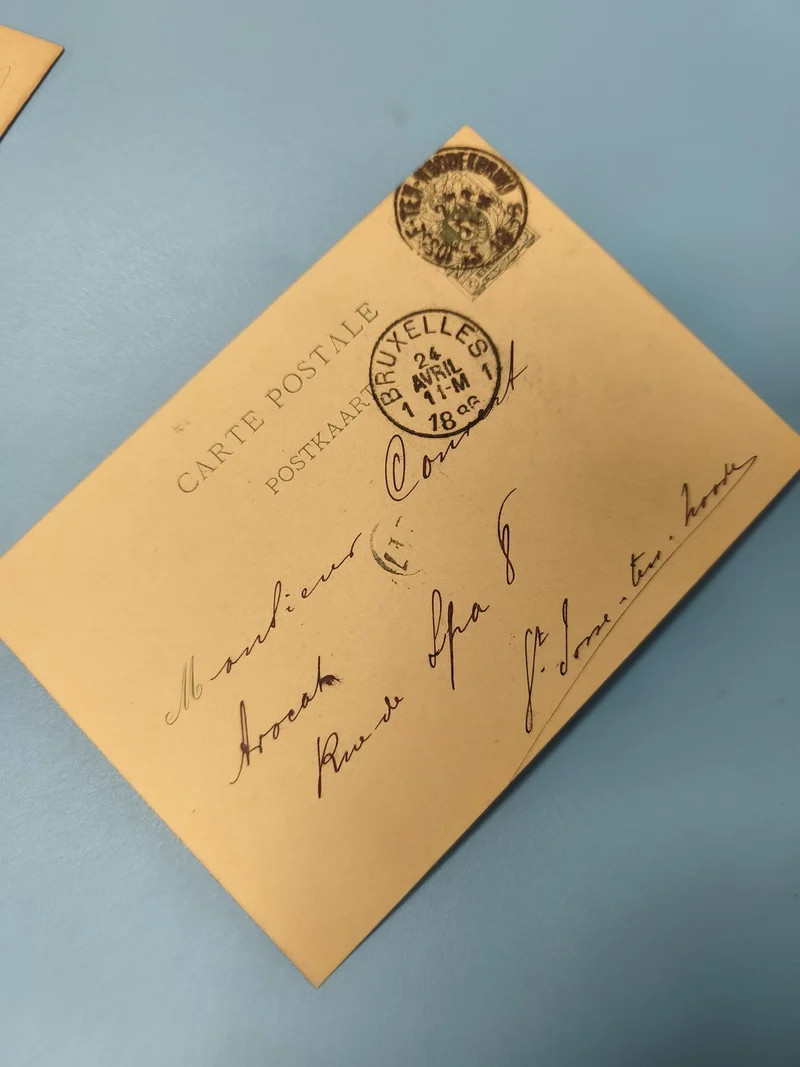 CARTE POSTALE
POSTKAART
BRUXELLES
24
AVRIL
1 11-M 1
18
Monsieur
Avocat
Rue de Spa 8
St. Josse-ten-noode